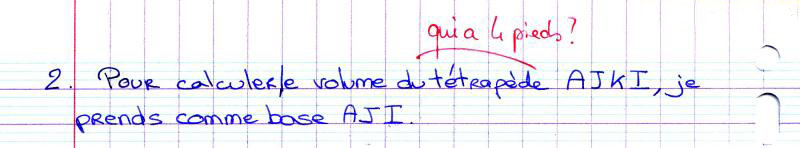 qui a 4 pieds?
2. Pour calculer le volume du tétrapède AJKI, je
prends comme base AJI.